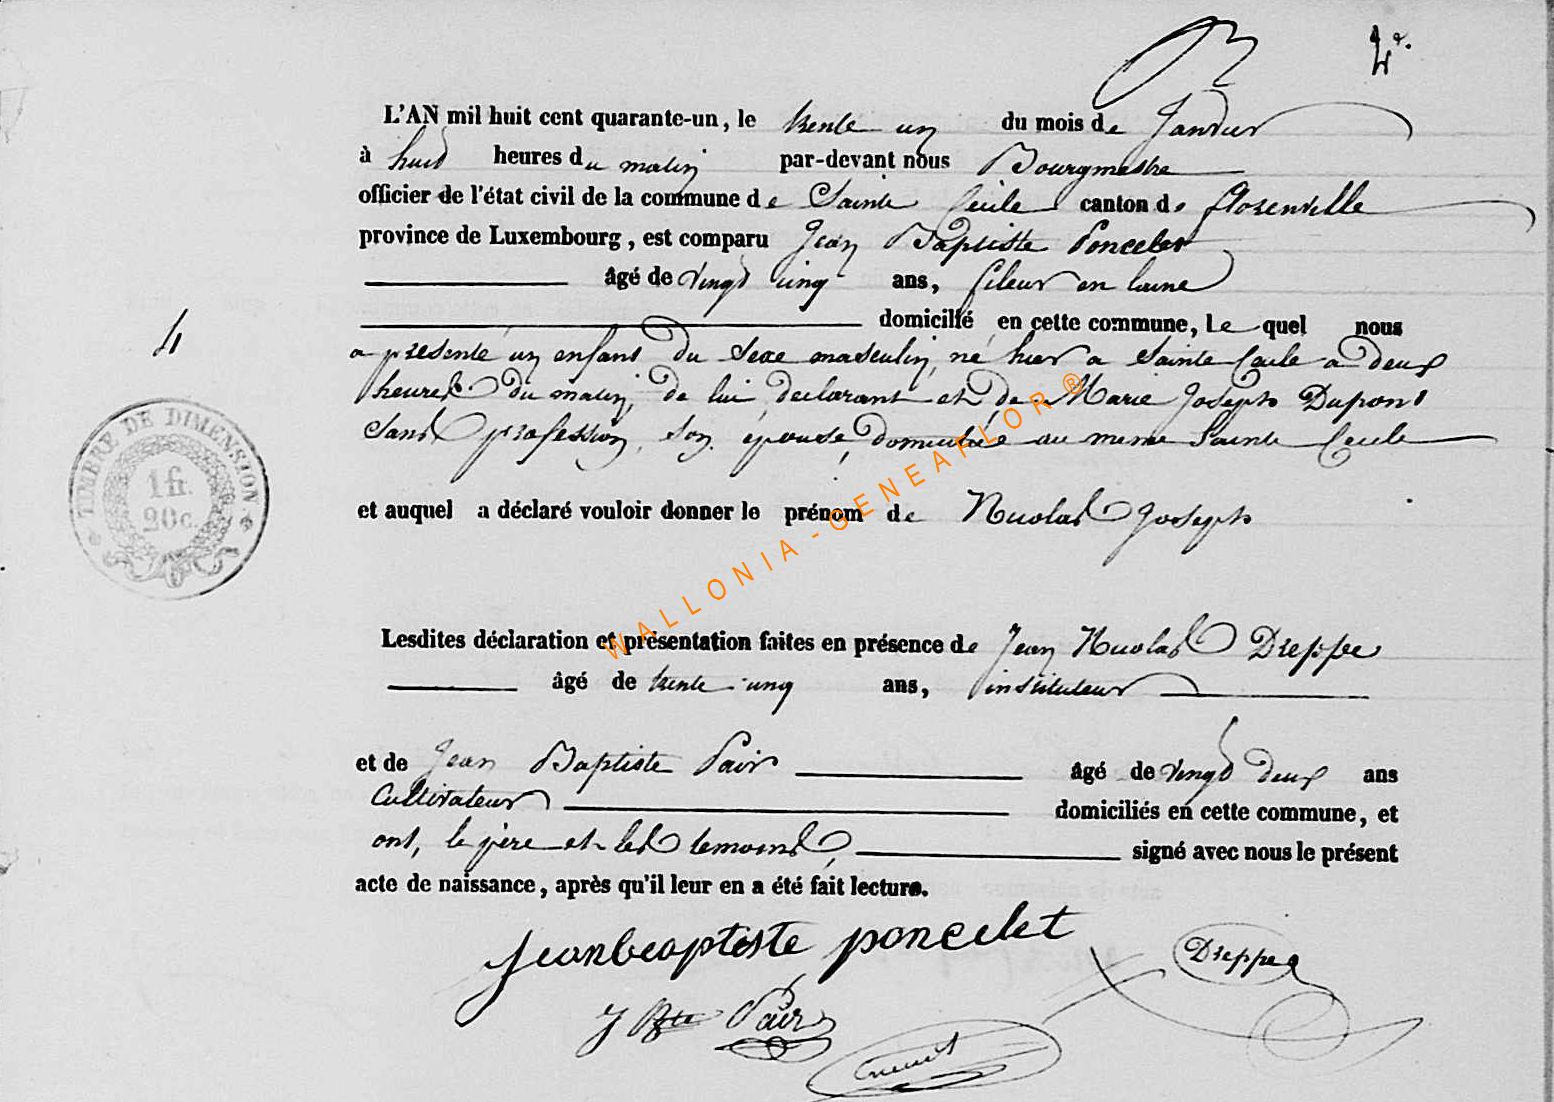 4e.
L'AN mil huit cent quarante-un, le trente un du mois de Janvier
à huit heures du matin par-devant nous Bourgmestre
officier de l'état civil de la commune de Sainte Cécile canton de florenville
province de Luxembourg, est comparu Jean Baptiste Poncelet
âgé de vingt cinq ans, fileur en laine
domicilié en cette commune, Le quel nous
4
a présenté un enfant du sexe masculin, né hier a Sainte Cecile a deux
heures du matin, de lui declarant et de Marie Joseph Dupont
Sans profession, son épouse, domiciliée au meme Sainte Cecile
TIMBRE DE DIMENSION
1 fr.
20 c.
et auquel a déclaré vouloir donner le prénom de Nicolas Joseph
WALLONIA-GENEAFLOR®
Lesdites déclaration et présentation faites en présence de Jean Nicolas Dreppe
âgé de trente cinq ans, instituteur
et de Jean Baptiste Pair âgé de vingt deux ans
Cultivateur domiciliés en cette commune, et
ont, le père et les temoins, signé avec nous le présent
acte de naissance, après qu'il leur en a été fait lecture.
Jean baptiste poncelet
Dreppe
J Bte Pair